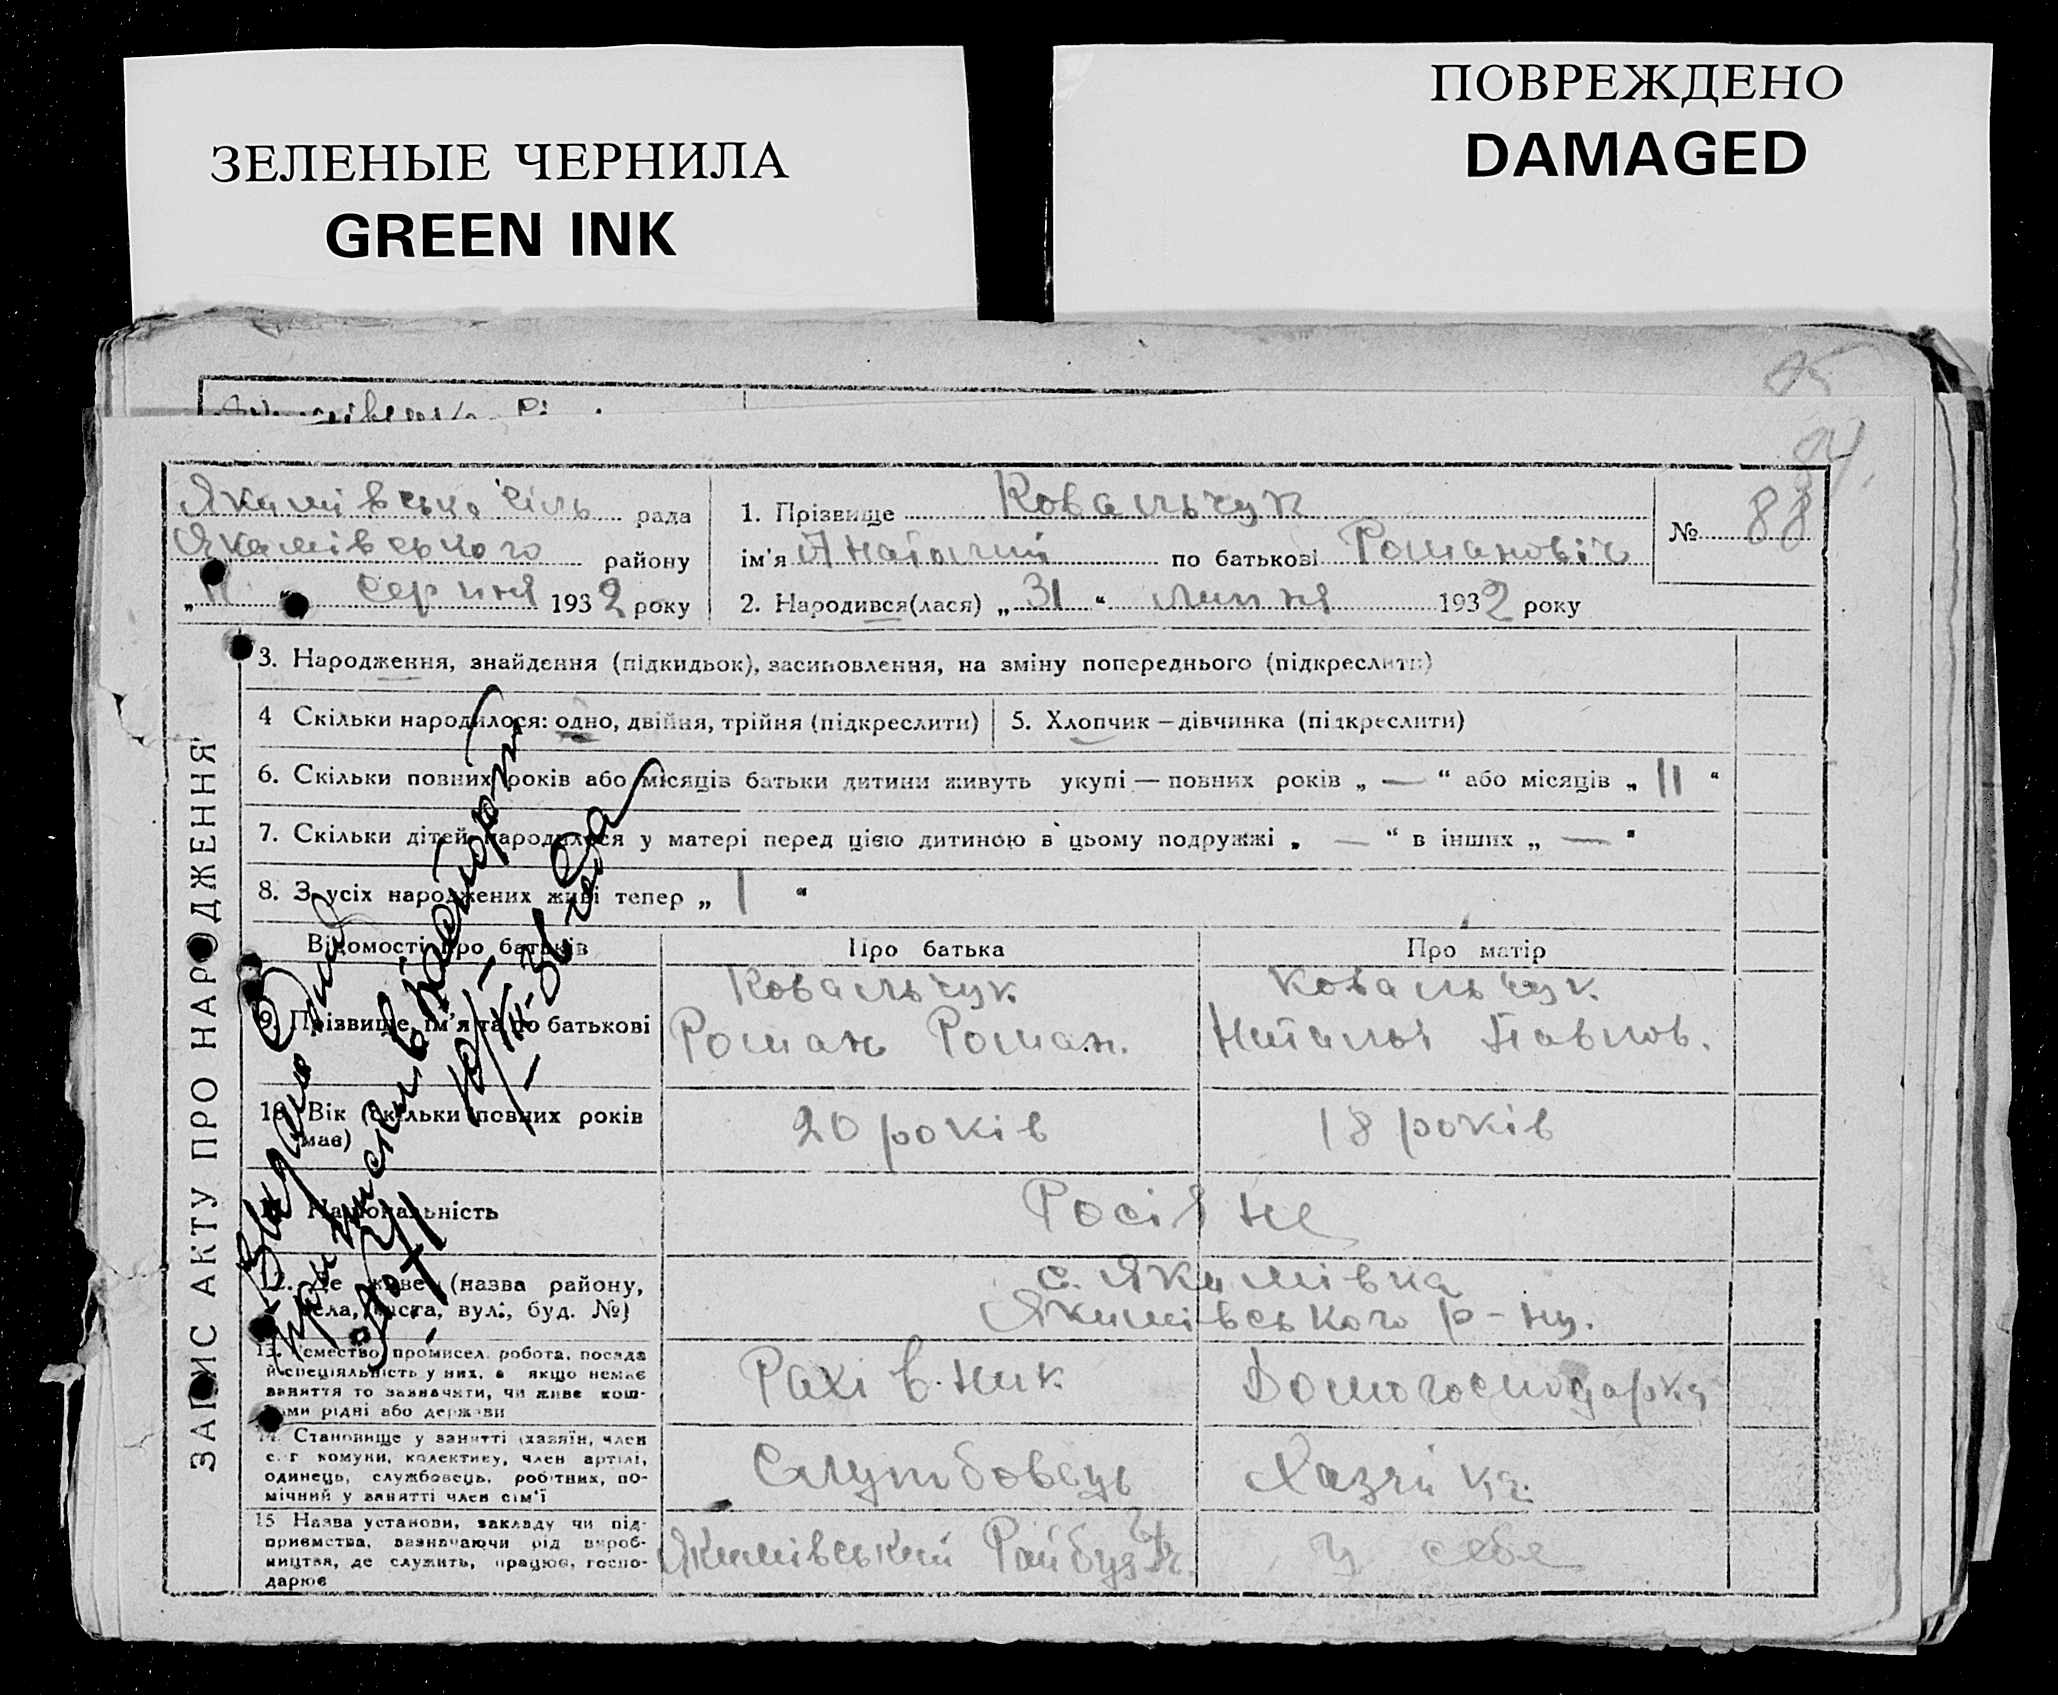 ЗЕЛЕНЫЕ ЧЕРНИЛА
GREEN INK
ПОВРЕЖДЕНО
DAMAGED
Якимівська сіль рада
Якимівського району
серпня 1932 року
1. Прізвище Ковальчук
ім'я Анатолий по батькові Романовіч
2. Народився(лася) „ 31 “ липня 1932 року
№ 88
ЗАПИС АКТУ ПРО НАРОДЖЕННЯ
3. Народження, знайдення (підкидьок), засиновлення, на зміну попереднього (підкреслити)
4 Скільки народилося: одно, двійня, трійня (підкреслити)
5. Хлопчик — дівчинка (підкреслити)
6. Скільки повних років або місяців батьки дитини живуть укупі — повних років „ — “ або місяців „ 11 “
7. Скільки дітей народилося у матері перед цією дитиною в цьому подружжі „ — “ в інших „ — “
8. З усіх народжених живі тепер „ 1 “
Відомості про батьків
Про батька
Про матір
9. Прізвище, ім'я та по батькові
Ковальчук
Роман Роман.
Ковальчук
Наталья Павлов.
10. Вік (скільки повних років має)
20 років
18 років
Національність
Росіяне
12. Де живе (назва району,
села, міста, вул., буд. №)
с. Якимівка
Якимівського р-ну.
13. Ремество, промисел, робота, посада
й спеціяльність у них, а якщо немає
заняття то зазначити, чи живе кош-
тами рідні або держави
Рахівник
Домогосподарка
14. Становище у занятті (хазяїн, член
с.-г комуни, колективу, член артілі,
одинець, службовець, робітник, по-
мічний у занятті член сім'ї
Службовець
Хазяйка
15 Назва установи, закладу чи під-
приємства, зазначаючи рід вироб-
ництва, де служить, працює, госпо-
дарює
Якимівський
у себе